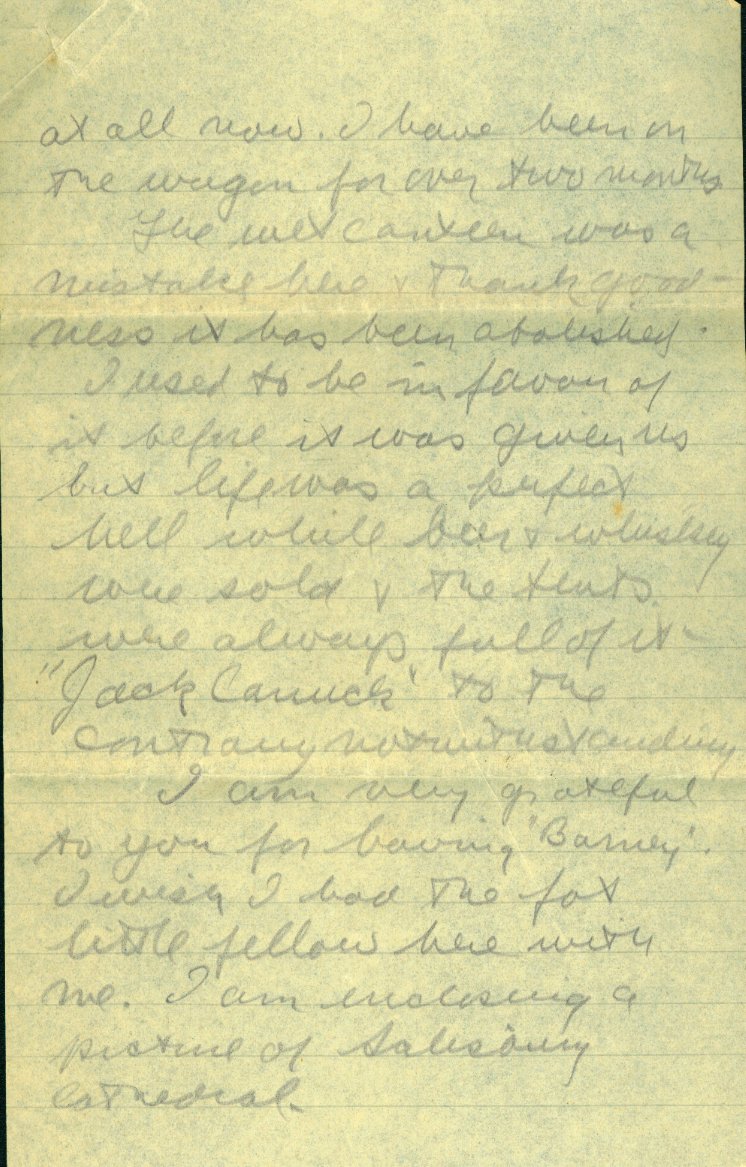 at all now. I have been on
the wagon for over two months
The wet canteen was a
mistake here & thank good-
ness it has been abolished.
I used to be in favor of
it before it was given us
but life was a perfect
hell while beer & whiskey
were sold & the tents
were always full of it -
"Jack Canuck" to the
contrary notwithstanding
I am very grateful
to you for having "Barney".
I wish I had the fat
little fellow here with
me. I am enclosing a
picture of Salisbury
Cathedral.